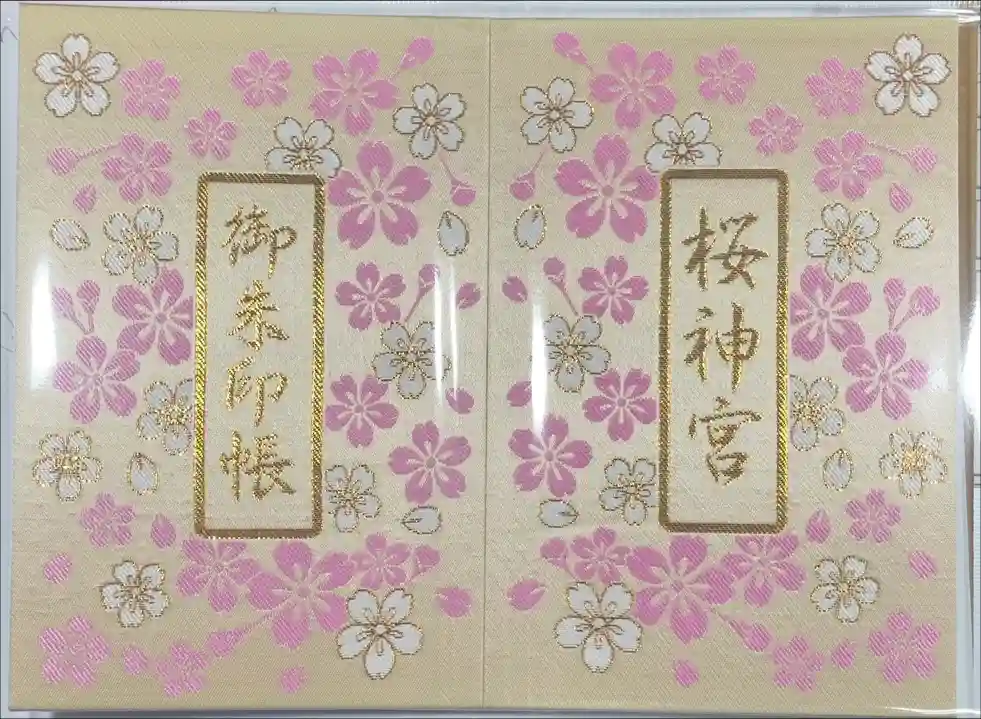 桜神宮
御朱印帳